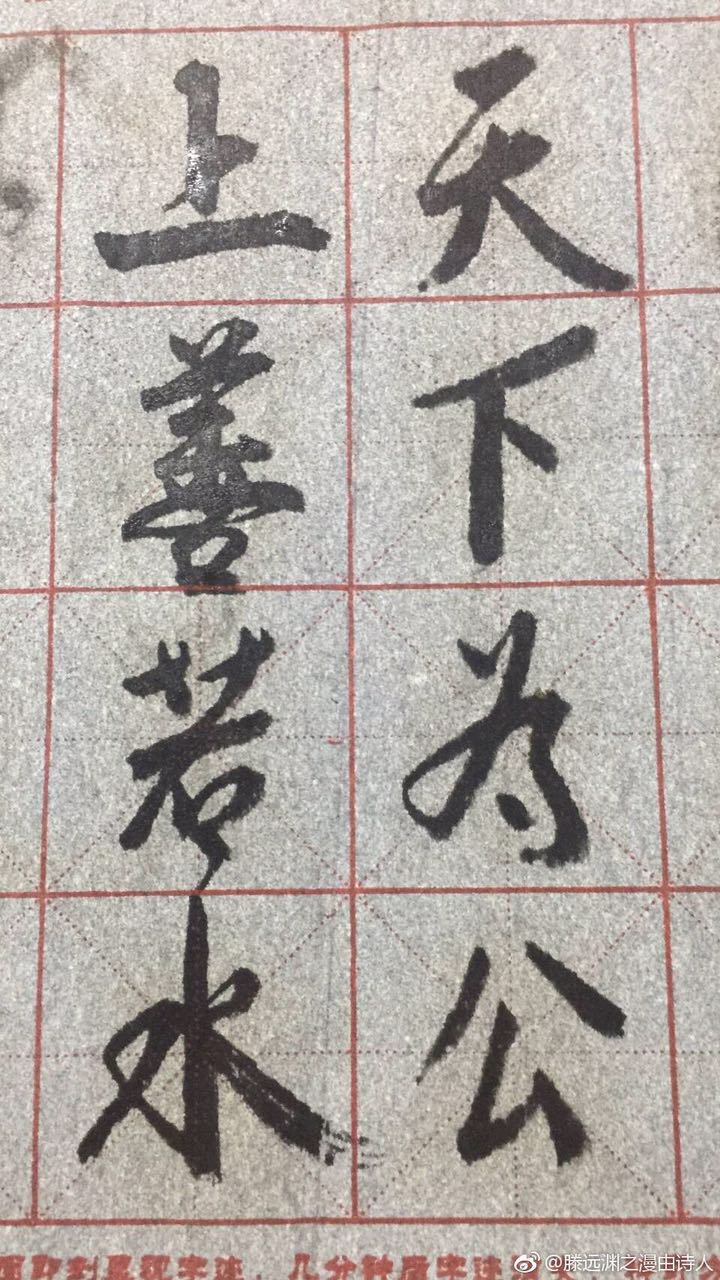 天下为公
上善若水
@滕远渊之漫由诗人